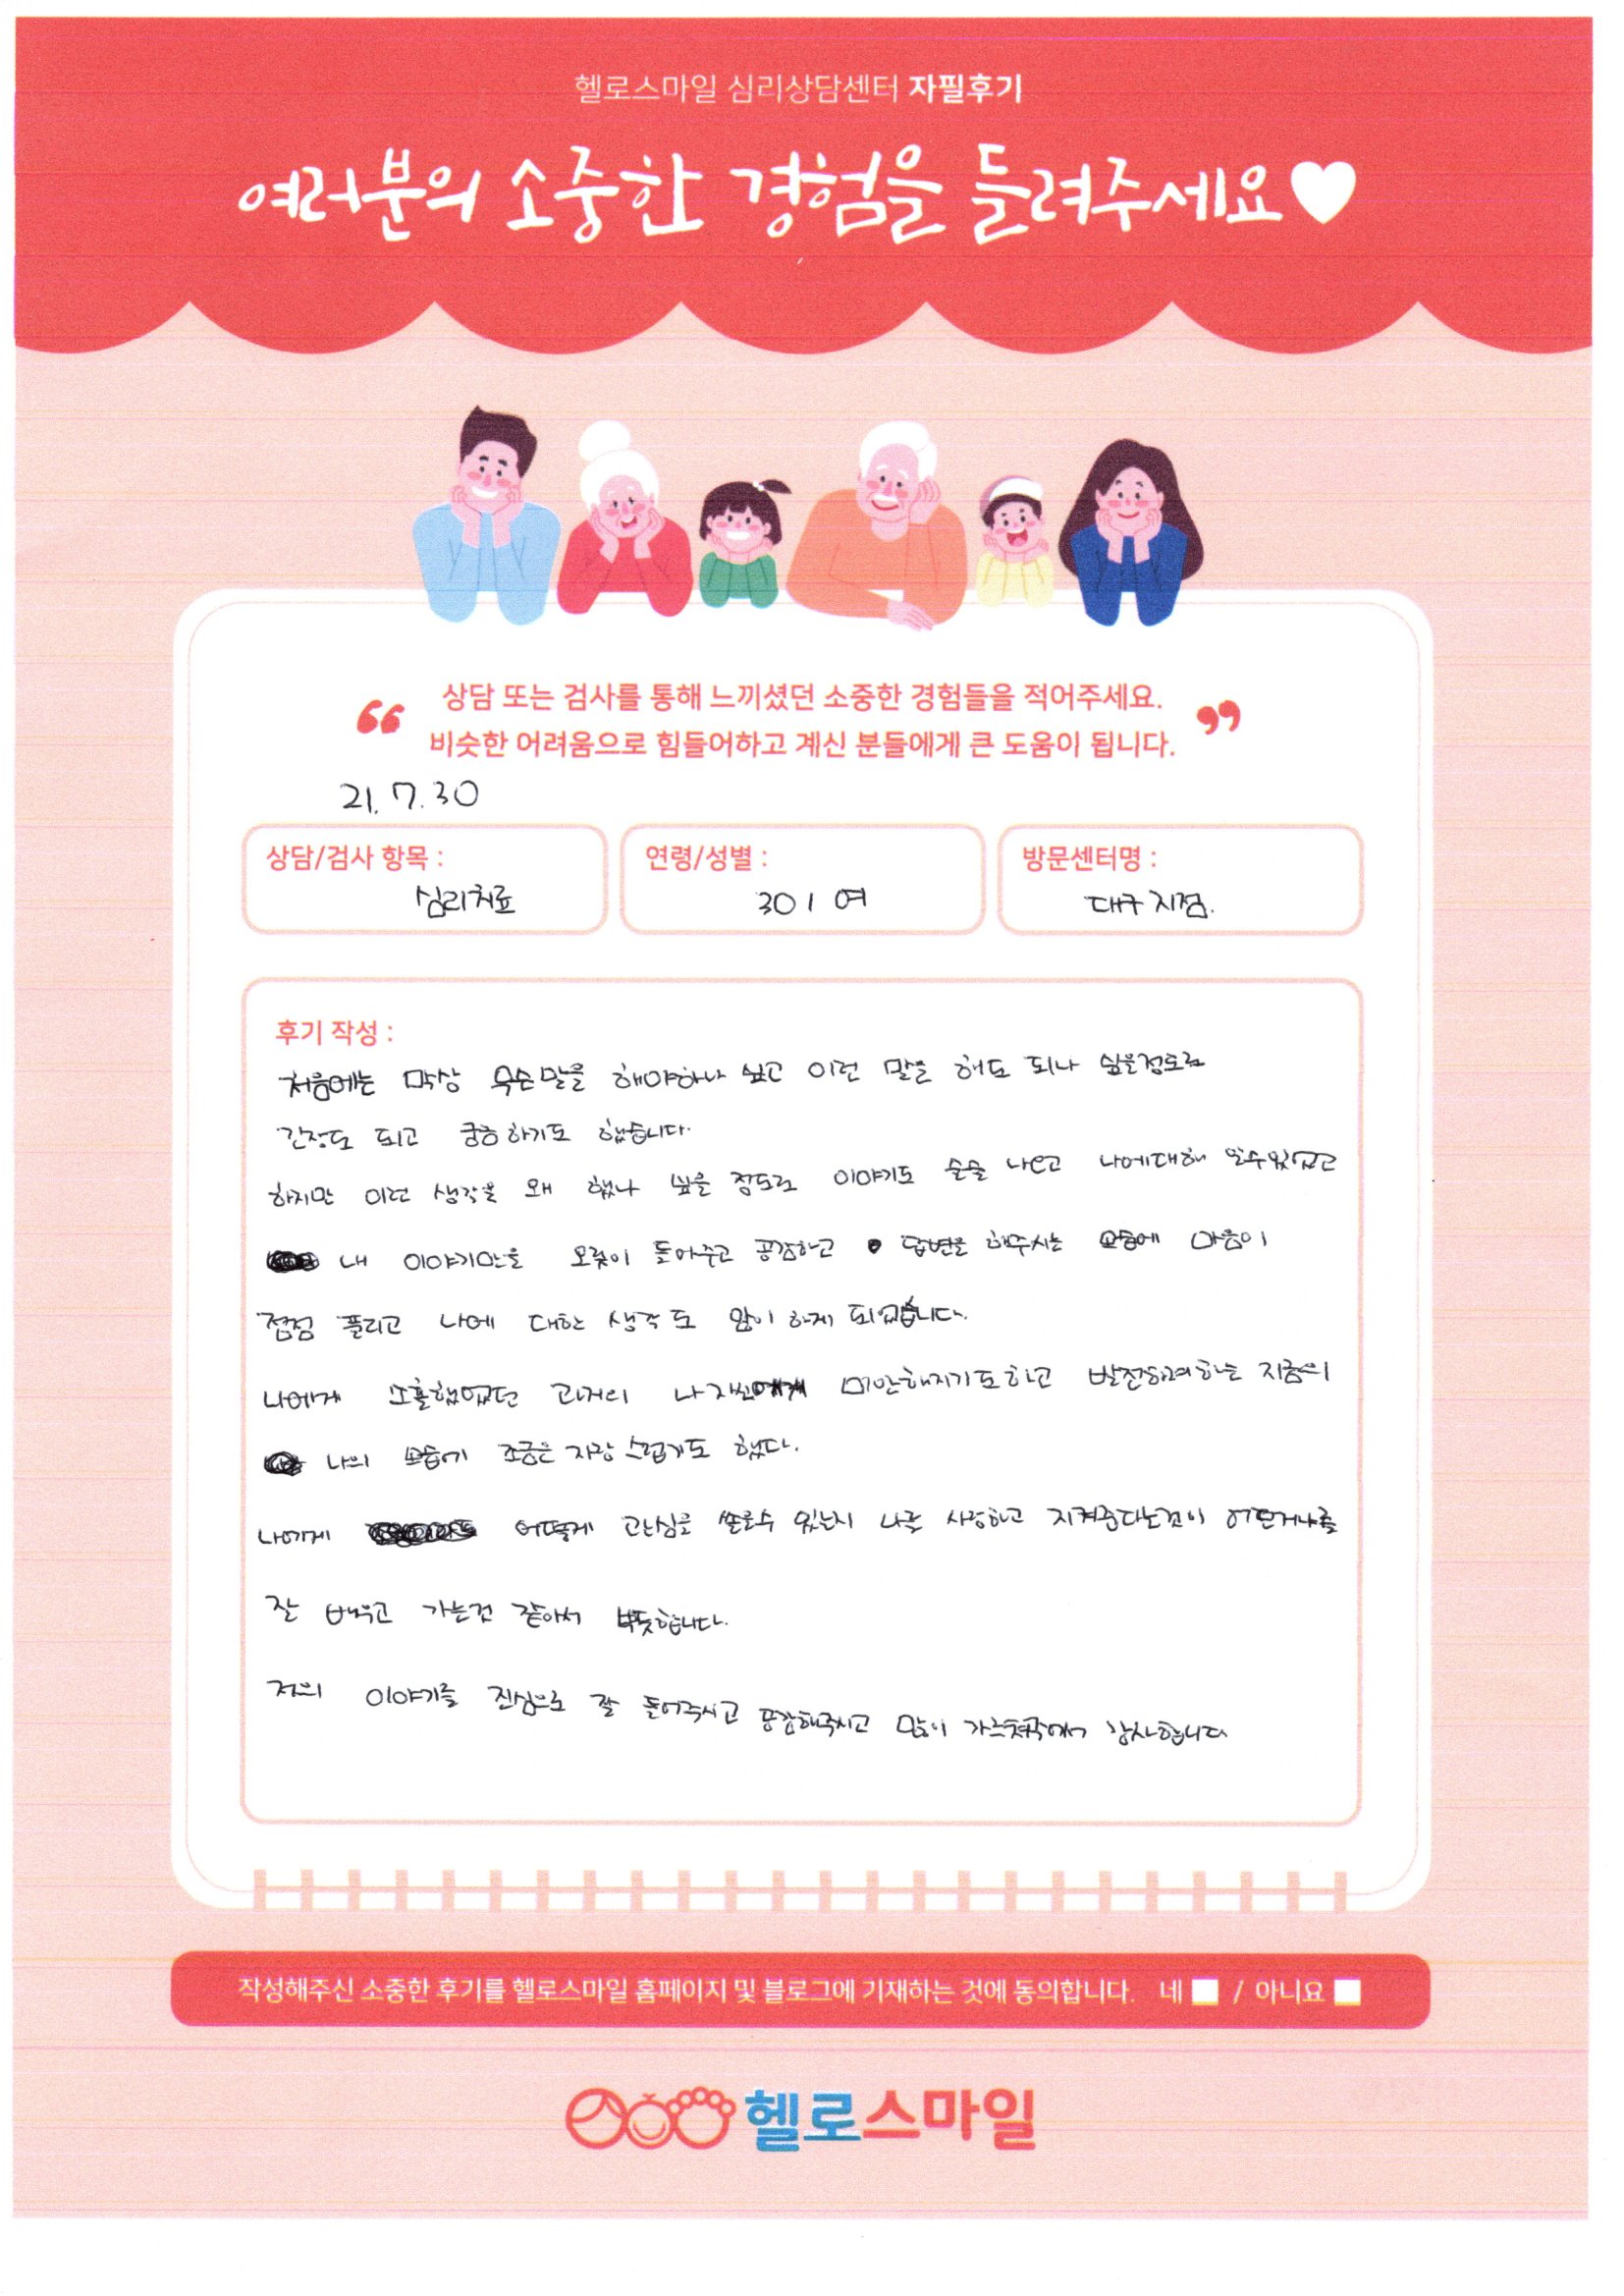 헬로스마일 심리상담센터 자필후기
여러분의 소중한 경험을 들려주세요
상담 또는 검사를 통해 느끼셨던 소중한 경험들을 적어주세요.
비슷한 어려움으로 힘들어하고 계신 분들에게 큰 도움이 됩니다.
21. 7. 30
상담/검사 항목 : 심리치료
연령/성별 : 30 / 여
방문센터명 : 대구지점.
후기 작성 :
처음에는 막상 무슨말을 해야하나 싶고 이런 말을 해도 되나 싶을정도로
긴장도 되고 궁금하기도 했습니다.
하지만 이런 생각을 왜 했나 싶을 정도로 이야기도 술술 나오고 나에대해 알수있었고
내 이야기만을 오롯이 들어주고 공감하고 답변을 해주시는 모습에 마음이
점점 풀리고 나에 대한 생각도 많이 하게 되었습니다.
나에게 소홀했었던 과거의 나 자신에게 미안해지기도하고 발전하려하는 지금의
나의 모습에 조금은 자랑스럽기도 했다.
나에게 어떻게 관심을 쏟을수 있는지 나를 사랑하고 지켜준다는것이 어떤거냐를
잘 배우고 가는것 같아서 뿌듯합니다.
저의 이야기를 진심으로 잘 들어주시고 공감해주시고 많이 가르쳐주셔서 감사합니다
작성해주신 소중한 후기를 헬로스마일 홈페이지 및 블로그에 기재하는 것에 동의합니다. 네 / 아니요
헬로스마일